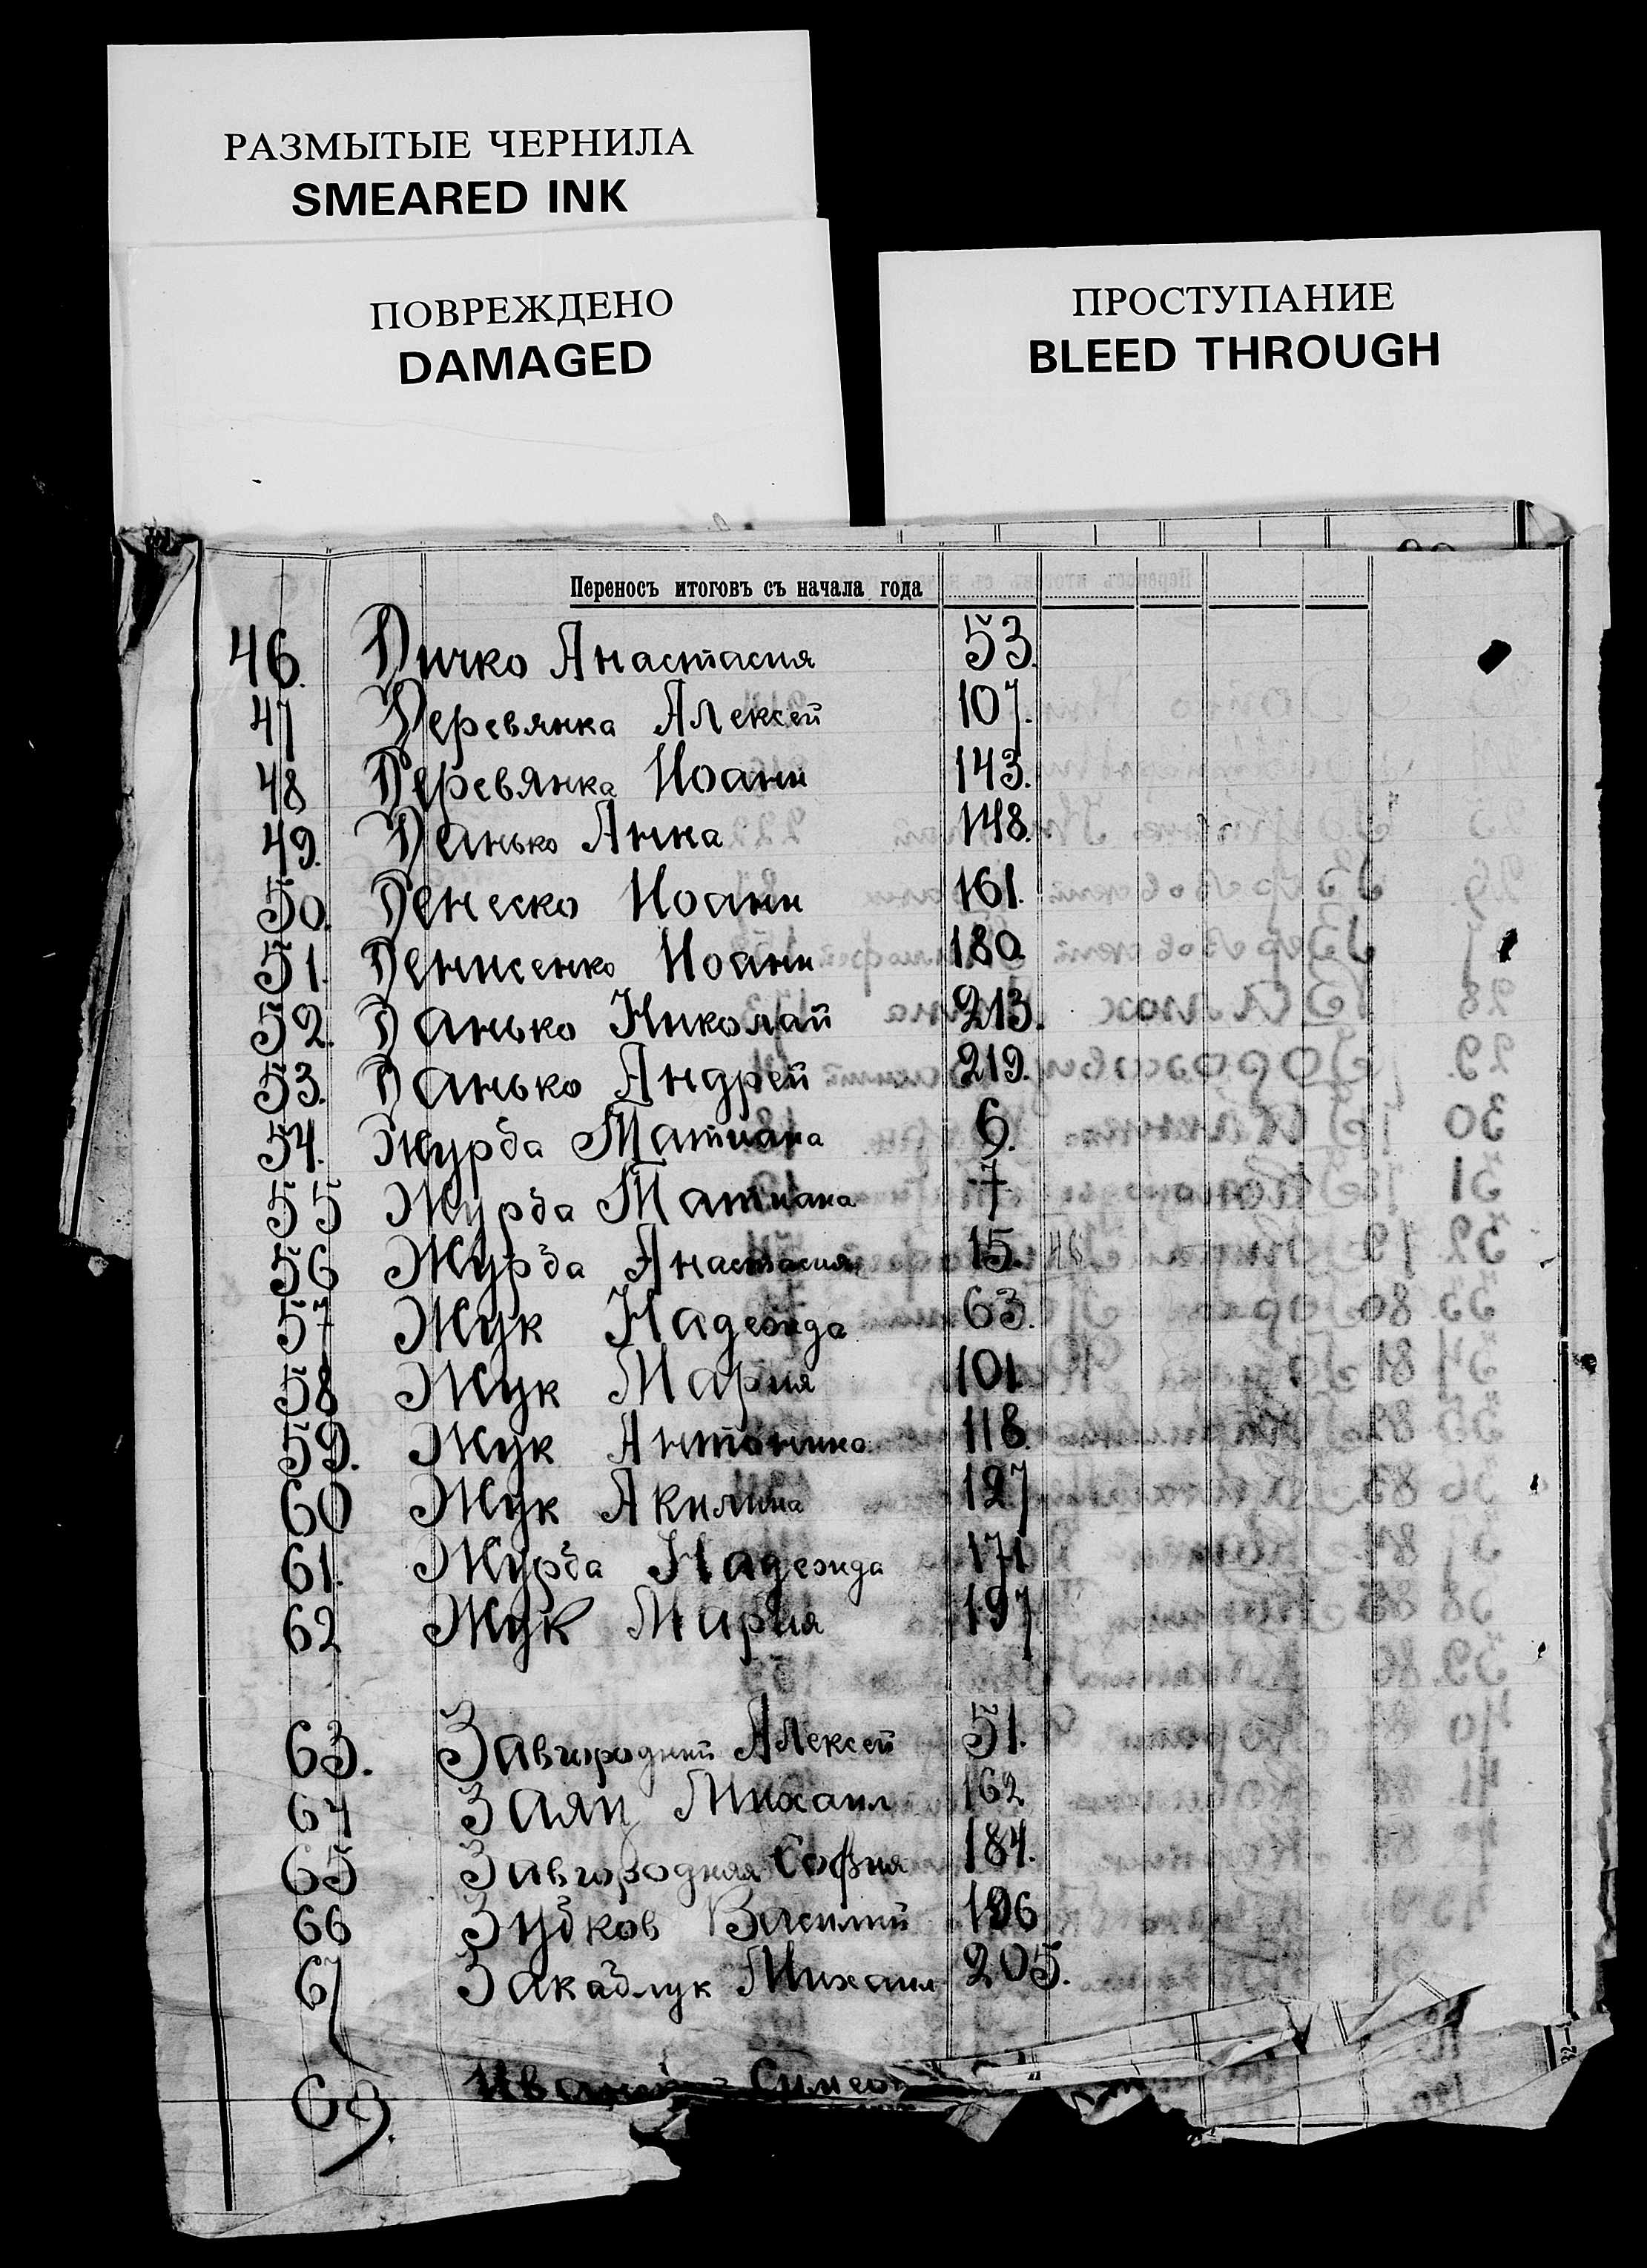 РАЗМЫТЫЕ ЧЕРНИЛА
SMEARED INK
ПОВРЕЖДЕНО
DAMAGED
ПРОСТУПАНИЕ
BLEED THROUGH
Переносъ итоговъ съ начала года
46. Дичко Анастасия 53.
47 Деревянка Алексей 107.
48 Деревянка Иоанн 143.
49. Данько Анна 148.
50. Денеско Иоанн 161.
51. Денисенко Иоанн 180.
52. Данько Николай 213.
53. Данько Андрей 219.
54. Журба Татиана 6.
55 Журба Татиана 7
56 Журба Анастасия 15.
57 Жук Надежда 63.
58 Жук Мария 101.
59. Жук Антонина 118.
60 Жук Акилина 127
61. Журба Надежда 171
62 Жук Мария 197
63. Завгородний Алексей 51.
64 Заяц Михаил 162
65 Завгородняя София 184.
66 Зубков Василий 196
67 Закаблук Михаил 205.
69.